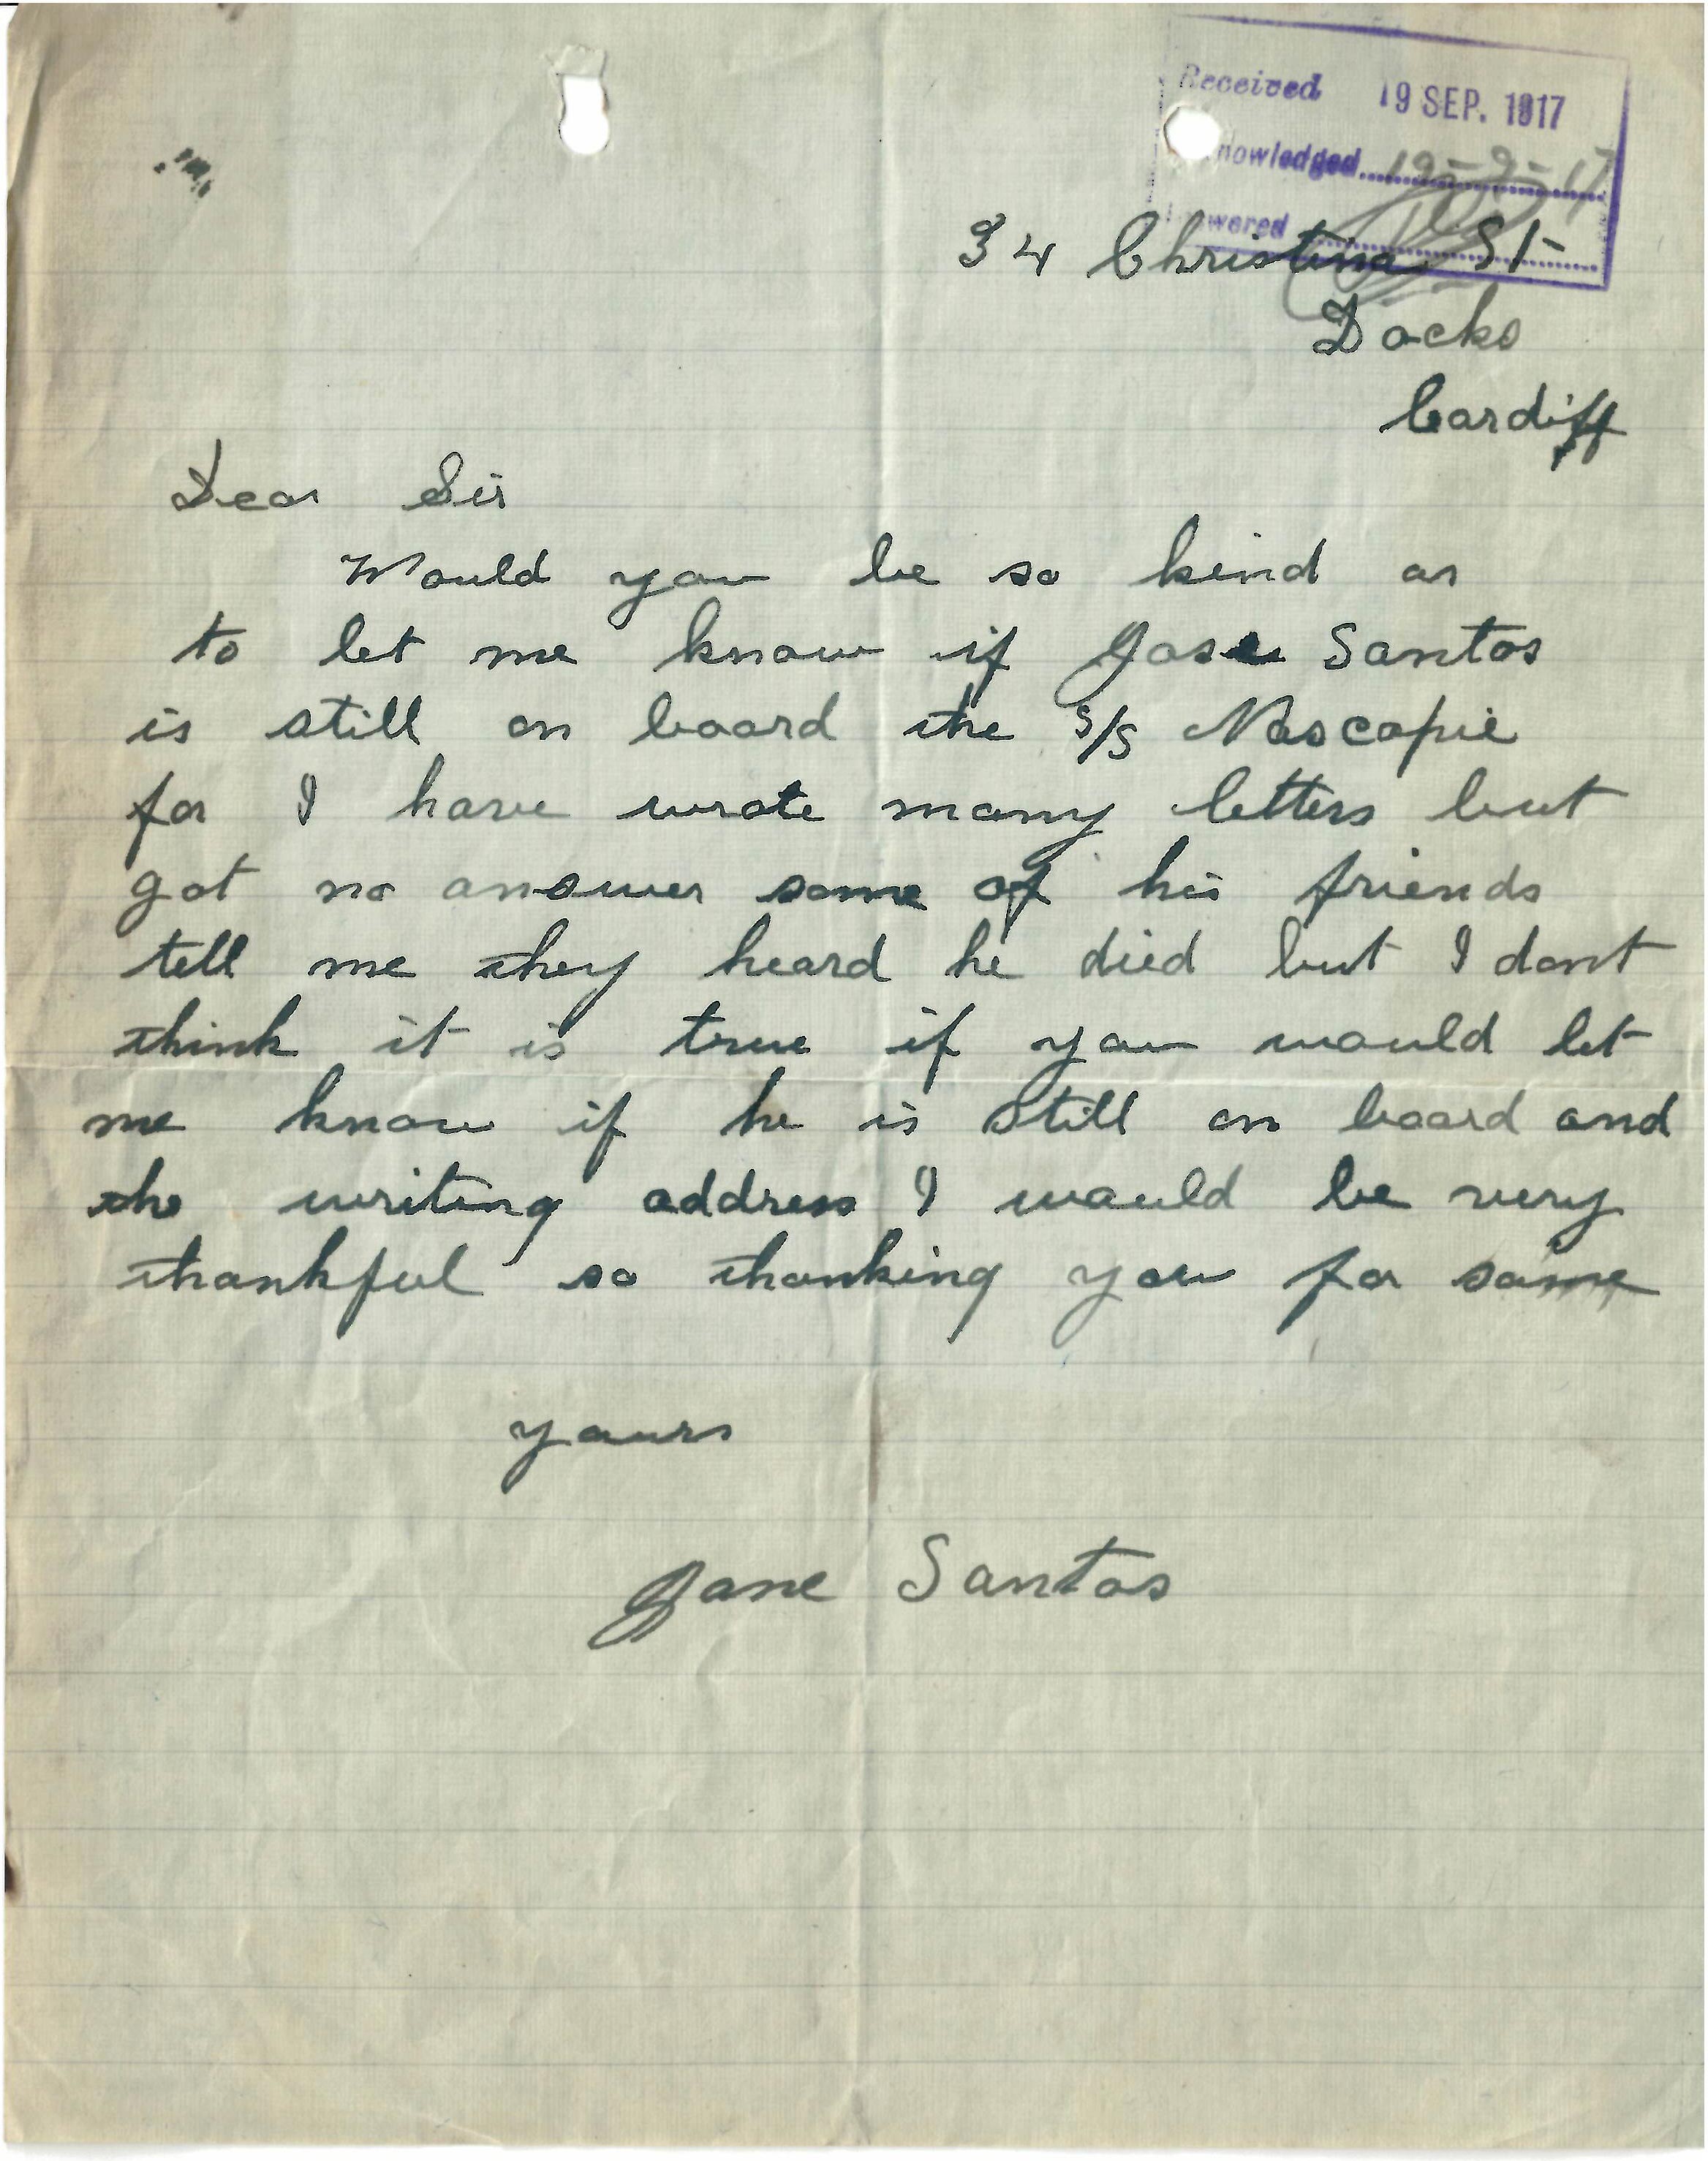 Received 19 SEP. 1917
nowledged 19-9-17
wered
34 Christina St
Docks
Cardiff
Dear Sir
Would you be so kind as
to let me know if Jose Santos
is still on board the S/S Nascopie
for I have wrote many letters but
got no answer some of his friends
tell me they heard he died but I dont
think it is true if you would let
me know if he is still on board and
the writing address I would be very
thankful so thanking you for same
yours
Jane Santos